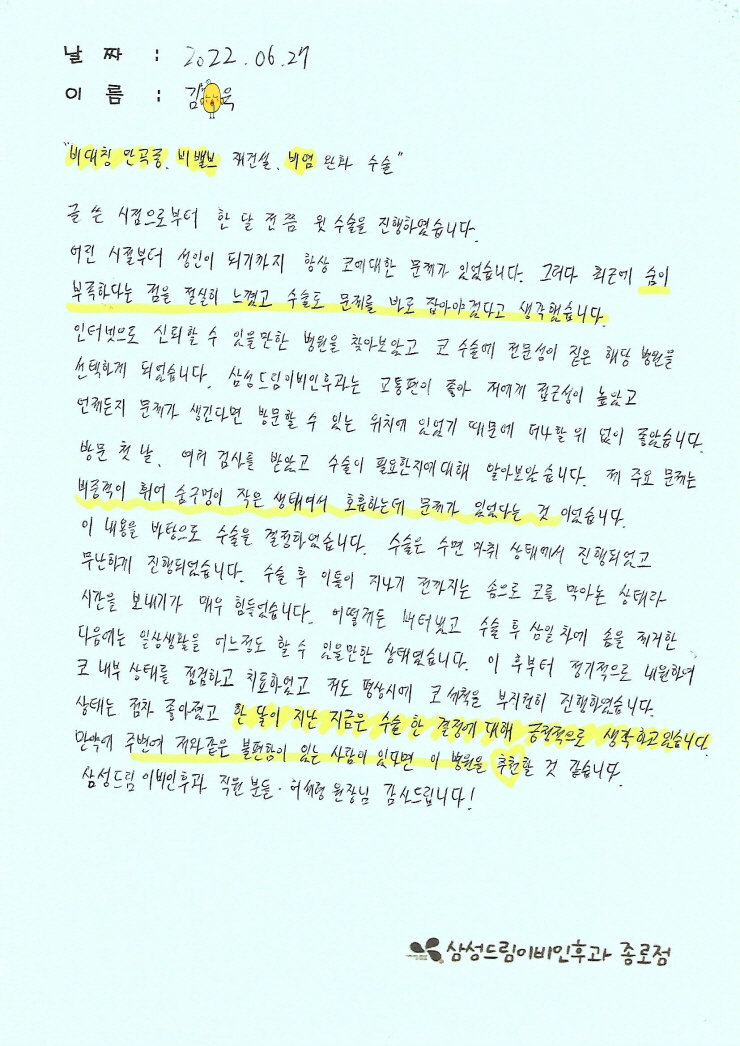 날 짜 : 2022.06.27
이 름 : 김 욱
"비대칭 만곡증, 비밸브 재건설, 비염 완화 수술"
글 쓴 시점으로부터 한 달 전 쯤 윗 수술을 진행하였습니다.
어린 시절부터 성인이 되기까지 항상 코에대한 문제가 있었습니다. 그러다 최근에 숨이
부족하다는 점을 절실히 느꼈고 수술로 문제를 바로 잡아야겠다고 생각했습니다.
인터넷으로 신뢰할 수 있을만한 병원을 찾아보았고 코 수술에 전문성이 짙은 해당 병원을
선택하게 되었습니다. 삼성드림이비인후과는 교통편이 좋아 저에게 접근성이 높았고
언제든지 문제가 생긴다면 방문할 수 있는 위치에 있었기 때문에 더나할 위 없이 좋았습니다.
방문 첫 날, 여러 검사를 받았고 수술이 필요한지에대해 알아보았습니다. 제 주요 문제는
비중격이 휘어 숨구멍이 작은 생태여서 호흡하는데 문제가 있었다는 것 이었습니다.
이 내용을 바탕으로 수술을 결정하였습니다. 수술은 수면 마취 상태에서 진행되었고
무난하게 진행되었습니다. 수술 후 이틀이 지나기 전까지는 솜으로 코를 막아논 상태라
시간을 보내기가 매우 힘들었습니다. 어떻게든 버텨냈고 수술 후 삼일차에 솜을 제거한
다음에는 일상생활을 어느정도 할 수 있을만한 상태였습니다. 이 후부터 정기적으로 내원하여
코 내부 상태를 점검하고 치료하였고 저도 평상시에 코 세척을 부지런히 진행하였습니다.
상태는 점차 좋아졌고 한 달이 지난 지금은 수술 한 결정에 대해 긍정적으로 생각하고있습니다.
만약에 주변에 저와같은 불편함이 있는 사람이 있다면 이 병원을 추천할 것 같습니다.
삼성드림 이비인후과 직원 분들·허채령 원장님 감사드립니다!
삼성드림이비인후과 종로점